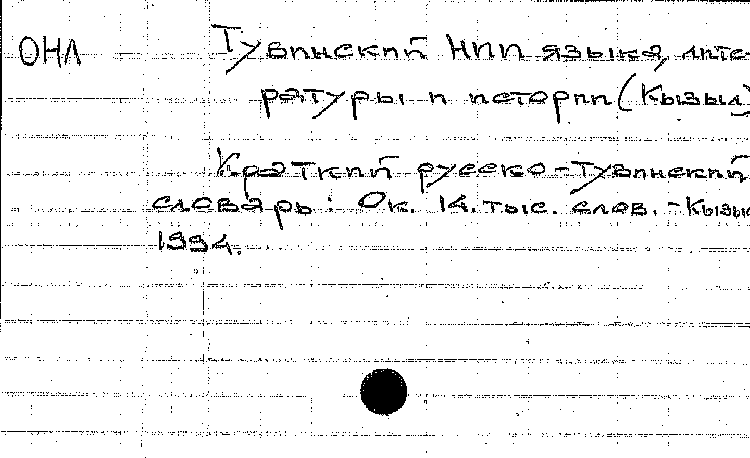 ОНЛ Тувинский НИИ языка, лите-
ратуры и истории (Кызыл)
Краткий русско-тувинский
словарь: Ок. 14. тыс. слов. - Кызы
1994.